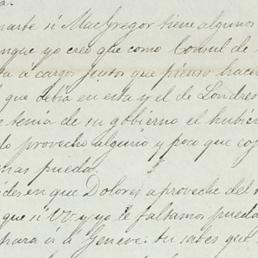 a.
narte si MacGregor tiene algunos
nque yo creo que como Consul de
a a cargo, juntos que pienso hacer
que debia en esta y el de Londres
tenia de su gobierno el hubier
do provecho alguno y poca que co
mas pueda.
des en que Dolores aproveche del
que si VV y yo le faltamos pueda
chara á á Geneve. tu sabes que